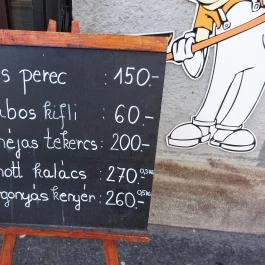 s perec : 150.-
bos kifli : 60.-
héjas tekercs : 200-
ott kalács : 270.-
gonyás kenyér : 260.-